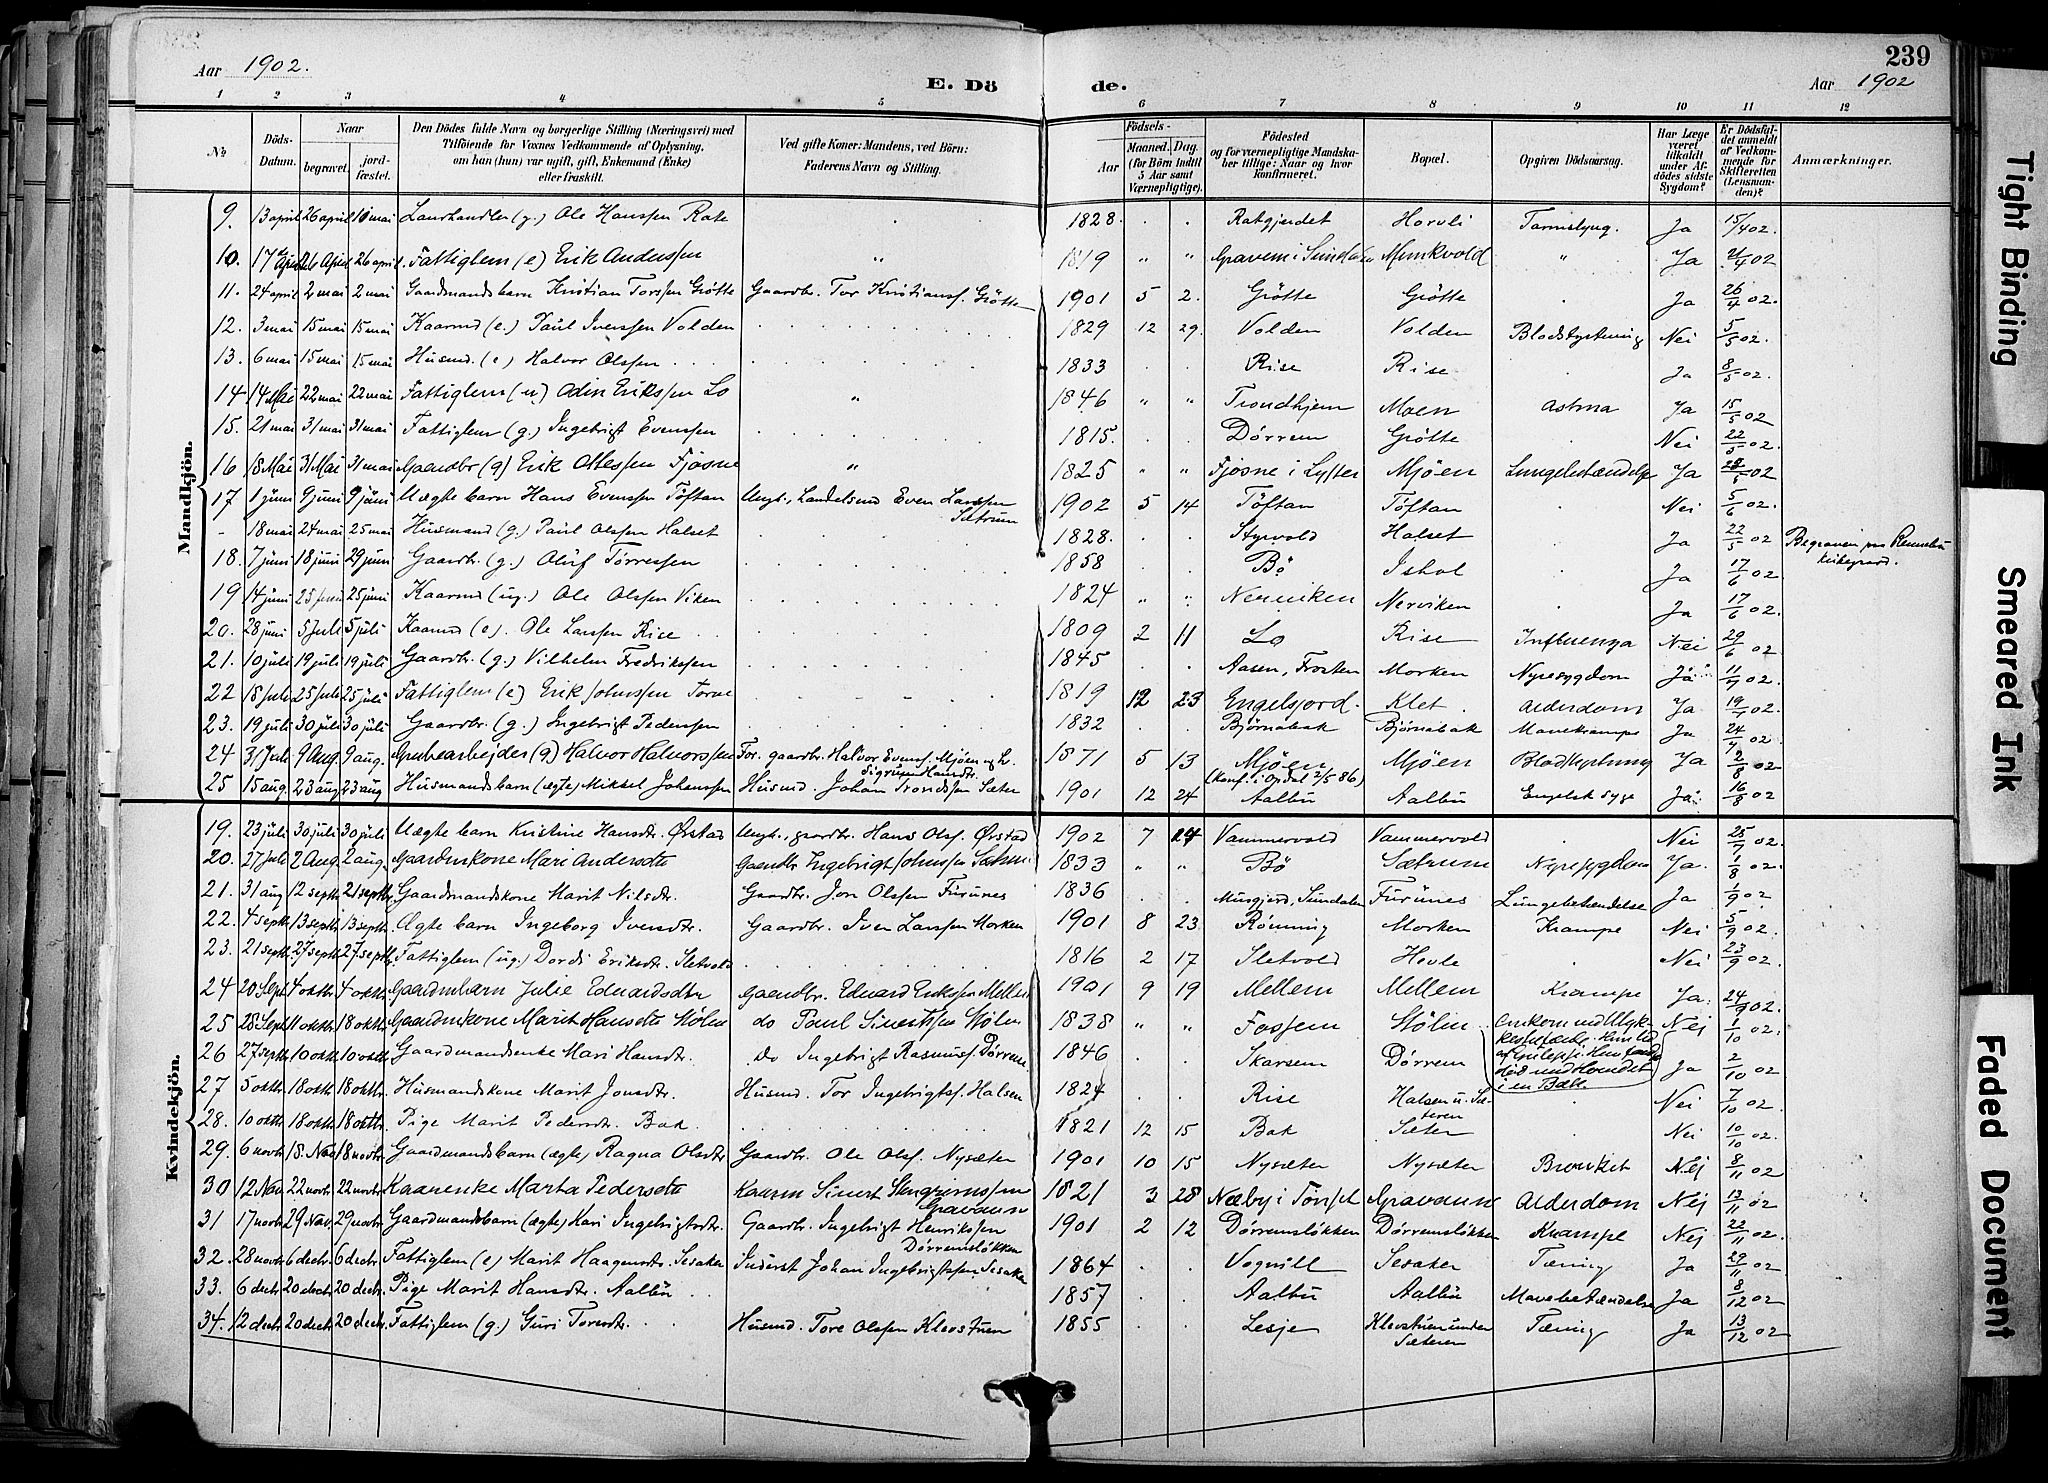 239
Aar 1902.
E. Döde.
Aar 1902
1 2 3 4 5 6 7 8 9 10 11 12
№
Döds-Datum.
Naar begravet. jordfæstet.
Den Dödes fulde Navn og borgerlige Stilling (Næringsvei) med Tilföiende for Voxnes Vedkommende af Oplysning, om han (hun) var ugift, gift, Enkemand (Enke) eller fraskilt.
Ved gifte Koner: Mandens, ved Börn: Faderens Navn og Stilling.
Födsels-
Aar Maaned. Dag. (for Börn indtil 5 Aar samt Værnepligtige).
Födested og for værnepligtige Mandskaber tillige: Naar og hvor konfirmeret.
Bopæl.
Opgiven Dödsaarsag.
Har Læge været tilkaldt under Afdödes sidste Sygdom?
Er Dödsfaldet anmeldt af Vedkommende for Skifteretten (Lensmanden)?
Anmærkninger.
Mandkjön.
9. 13 april 26 april 10 mai (g.) Ole Hanssen Rate 1828. Ratgjerdet Horvli Ja 15/4 02.
10. 17 April 26 April 26 april. Fattiglem (e) Erik Anderssen " 1819 " " Gravem i Sundalen Munkvold " Ja 02
11. 24 april 2 mai 2 mai Gaardmandsbarn Kristian Torssen Grötte Gaardbr. Tor Kristians. Grötte 1901 5 2. Grötte Grötte Ja 26/4 02.
12. 3 mai 15 mai 15 mai Kaarmd (e.) Paul Iverssen Volden 1829 12 29. Volden Volden Blodstyrtning Nei 5/5 02.
13. 6 mai 15 mai 15 mai Husmd. (e) Halvor Olssen 1833 Rise Rise Ja 8/5 02.
14 14 Mai 22 mai 22 mai Fattiglem (u.) Odin Erikssen Lo " 1846 " " Trondhjem Moen Astma Ja 15/5 02
15. 21 mai 31 mai 31 mai Fattiglem (g.) Ingebrigt Evenssen 1815. Dörrem Grötte Nei 22/5 02.
16 18 Mai 31 Mai 31 mai Gaardbr (g) Erik Ottessen Fjösne " 1825 " " Fjösne i Mjöen Lungebetændelse Ja 02
17 1 juni 9 juni 9 juni Uægte barn Hans Evenssen Töftan Ungk., Even Larssen Sætrum 1902 5 14 Töftan Töftan Nei 5/6 02.
- 18 mai 24 mai 25 mai Husmand (g.) Paul Olssen Halset 1828. Styvold Halset Ja 22/5 02 Begraven paa Rennebu kirkegaard.
18. 7 juni 18 juni 29 juni Gaardbr. (g.) Oluf Törressen 1858 Bö Ishol Ja 17/6 02.
19 14 juni 25 juni 25 juni Kaarmd (ug.) Ole Olssen Viken 1824 " " Nerviken Nerviken Ja 17/6 02.
20. 28 juni 5 Juli 5 juli Kaarmd (e). Ole Larssen Rise 1809 2 11 Lo Rise Influenza Nei 29/6 02
21. 10 juli 19 juli 19 juli Gaardbr. (g.) Vilhelm Fredrikssen 1845 Aasen, Frosten Morken Nyresygdom Ja 11/7 02.
22 18 Juli 25 Juli 25 juli Fattiglem (e) Erik Johnssen Torve 1819 12 23 Engelsjord Klet Alderdom Ja 19/7 02.
23. 19 juli 30 juli 30 juli Gaardbr. (g.) Ingebrigt Pederssen 1832 Björnabak Björnabak Mavekrampe Ja 24/7 02.
24 31 Juli 9 Aug. 9 aug. Grubearbejder (g) Halvor Halvorssen For. gaardbr. Halvor Evens. Mjöen og h. Sigrun Hansdr. 1871 5 13 Mjöen (Konf. i Opdal 2/5 86) Mjöen Blodstyrtning Ja 2/8 02
25 15 aug 23 aug 23 aug Husmandsbarn (ægte) Mikkel Johanssen Husmd. Johan Trondssen Sæter 1901 12 24 Aalbu Aalbu Engelsk Syge Ja 16/8 02
Kvindekjön.
19. 23 juli 30 juli 30 juli Uægte barn Kristine Hansdr. Örstad Ungk., gaardbr. Hans Ols. Örstad 1902 7 14 Vammervold Vammervold Nei 25/7 02
20. 27 Juli 2 Aug. 2 aug. Gaardmkone Mari Andersdtr Gaardbr Ingebrigt Johnssen 1833 " " Bö Sætrum Nyresygdom Ja. 1/8 02.
21. 31 aug 12 septbr 21 septbr. Gaardmandskone Marit Nilsdr. Gaardbr. Jon Olssen Furunes 1836 Musgjerd, Sundalen Furunes Lungebetændelse Ja 1/9 02.
22. 4 septbr 13 septbr 13 septbr. Ægte barn Ingeborg Iversdr. Gaardbr. Iver Larssen Morken 1901 8 23. Rönning Morken Krampe Nei 5/9 02.
23. 21 septbr. 27 septbr 27 septbr. Fattiglem (ug.) Dordi Eriksdr. Sletvold 1816 2 17 Sletvold Hevle Nei 23/9 02.
24 20 Sept 4 oktbr 4 oktbr. Gaardmbarn Julie Eduardsdtr Gaardbr. Eduard Erikssen Mellem 1901 9 19 Mellem Mellem Krampe Ja. 24/9 02.
25 28 Sept 11 oktbr 18 oktbr. Gaardmkone Marit Hansdtr Stölen do Paul Sivertssen Stölen 1838 " " Fossem Stölen Nej 1/10 02.
26 27 septbr. 10 oktbr 10 oktbr Gaardmandsenke Mari Hansdr. do Ingebrigt Rasmuss. Dörrem 1846 Skarsem Dörrem död med Hovedet i en Bæk. Ja 2/10 02
27 5 oktbr 18 oktbr. 18 oktbr. Husmandskone Marit Jonsdr. Husmd. Tor Ingebrigts. Halsen 1824 Rise Halsen u. Sæteren Nei 7/10 02.
28. 10 oktbr 18 oktbr 18 oktbr. Pige Marit Pedersdr. Bak. 1821 12 15 Bak Sæter Nei 10/10 02.
29. 6 novbr 18. Nov 18 novbr. Gaardmandsbarn (ægte) Ragna Olsdtr Gaardbr. Ole Ols. Nysæter 1901 10 15 Nysæter Nysæter Bronkit Nej 8/11 02
30 12 Nov. 22 novbr. 22 novbr. Kaarenke Marta Pedersdtr Kaarm Sivert Stengrimssen Gravaune 1821 3 28 Næby i Tönset Gravaune Alderdom Nej 13/11 02.
31 17 novbr 29 Nov. 29 novbr. Gaardmandsbarn (ægte) Kari Ingebrigtsdr. Gaardbr. Ingebrigt Henrikssen Dörremslökken 1901 2 12 Dörremslökken Dörremslökken Krampe Nej 22/11 02.
32. 28 novbr 6 decbr. 6 decbr. Fattiglem (e) Marit Haagensdr. Sesaker Inderst Johan Ingebrigtssen Sesaker 1864 Vognill Sesaker Tæring Ja 29/11 02
33. 6 decbr. 20 decbr. 20 decbr. Pige Marit Hansdr. Aalbu 1857 Aalbu Aalbu Mavebetændelse Ja 8/12 02
34. 12 decbr 20 decbr. 20 decbr. Fattiglem (g.) Guri Toresdr. Husmd. Tore Olssen Klevstuen 1855 Lesje Klevstuen under Sæteren Tæring Ja 13/12 02
Tight Binding
Smeared Ink
Faded Document